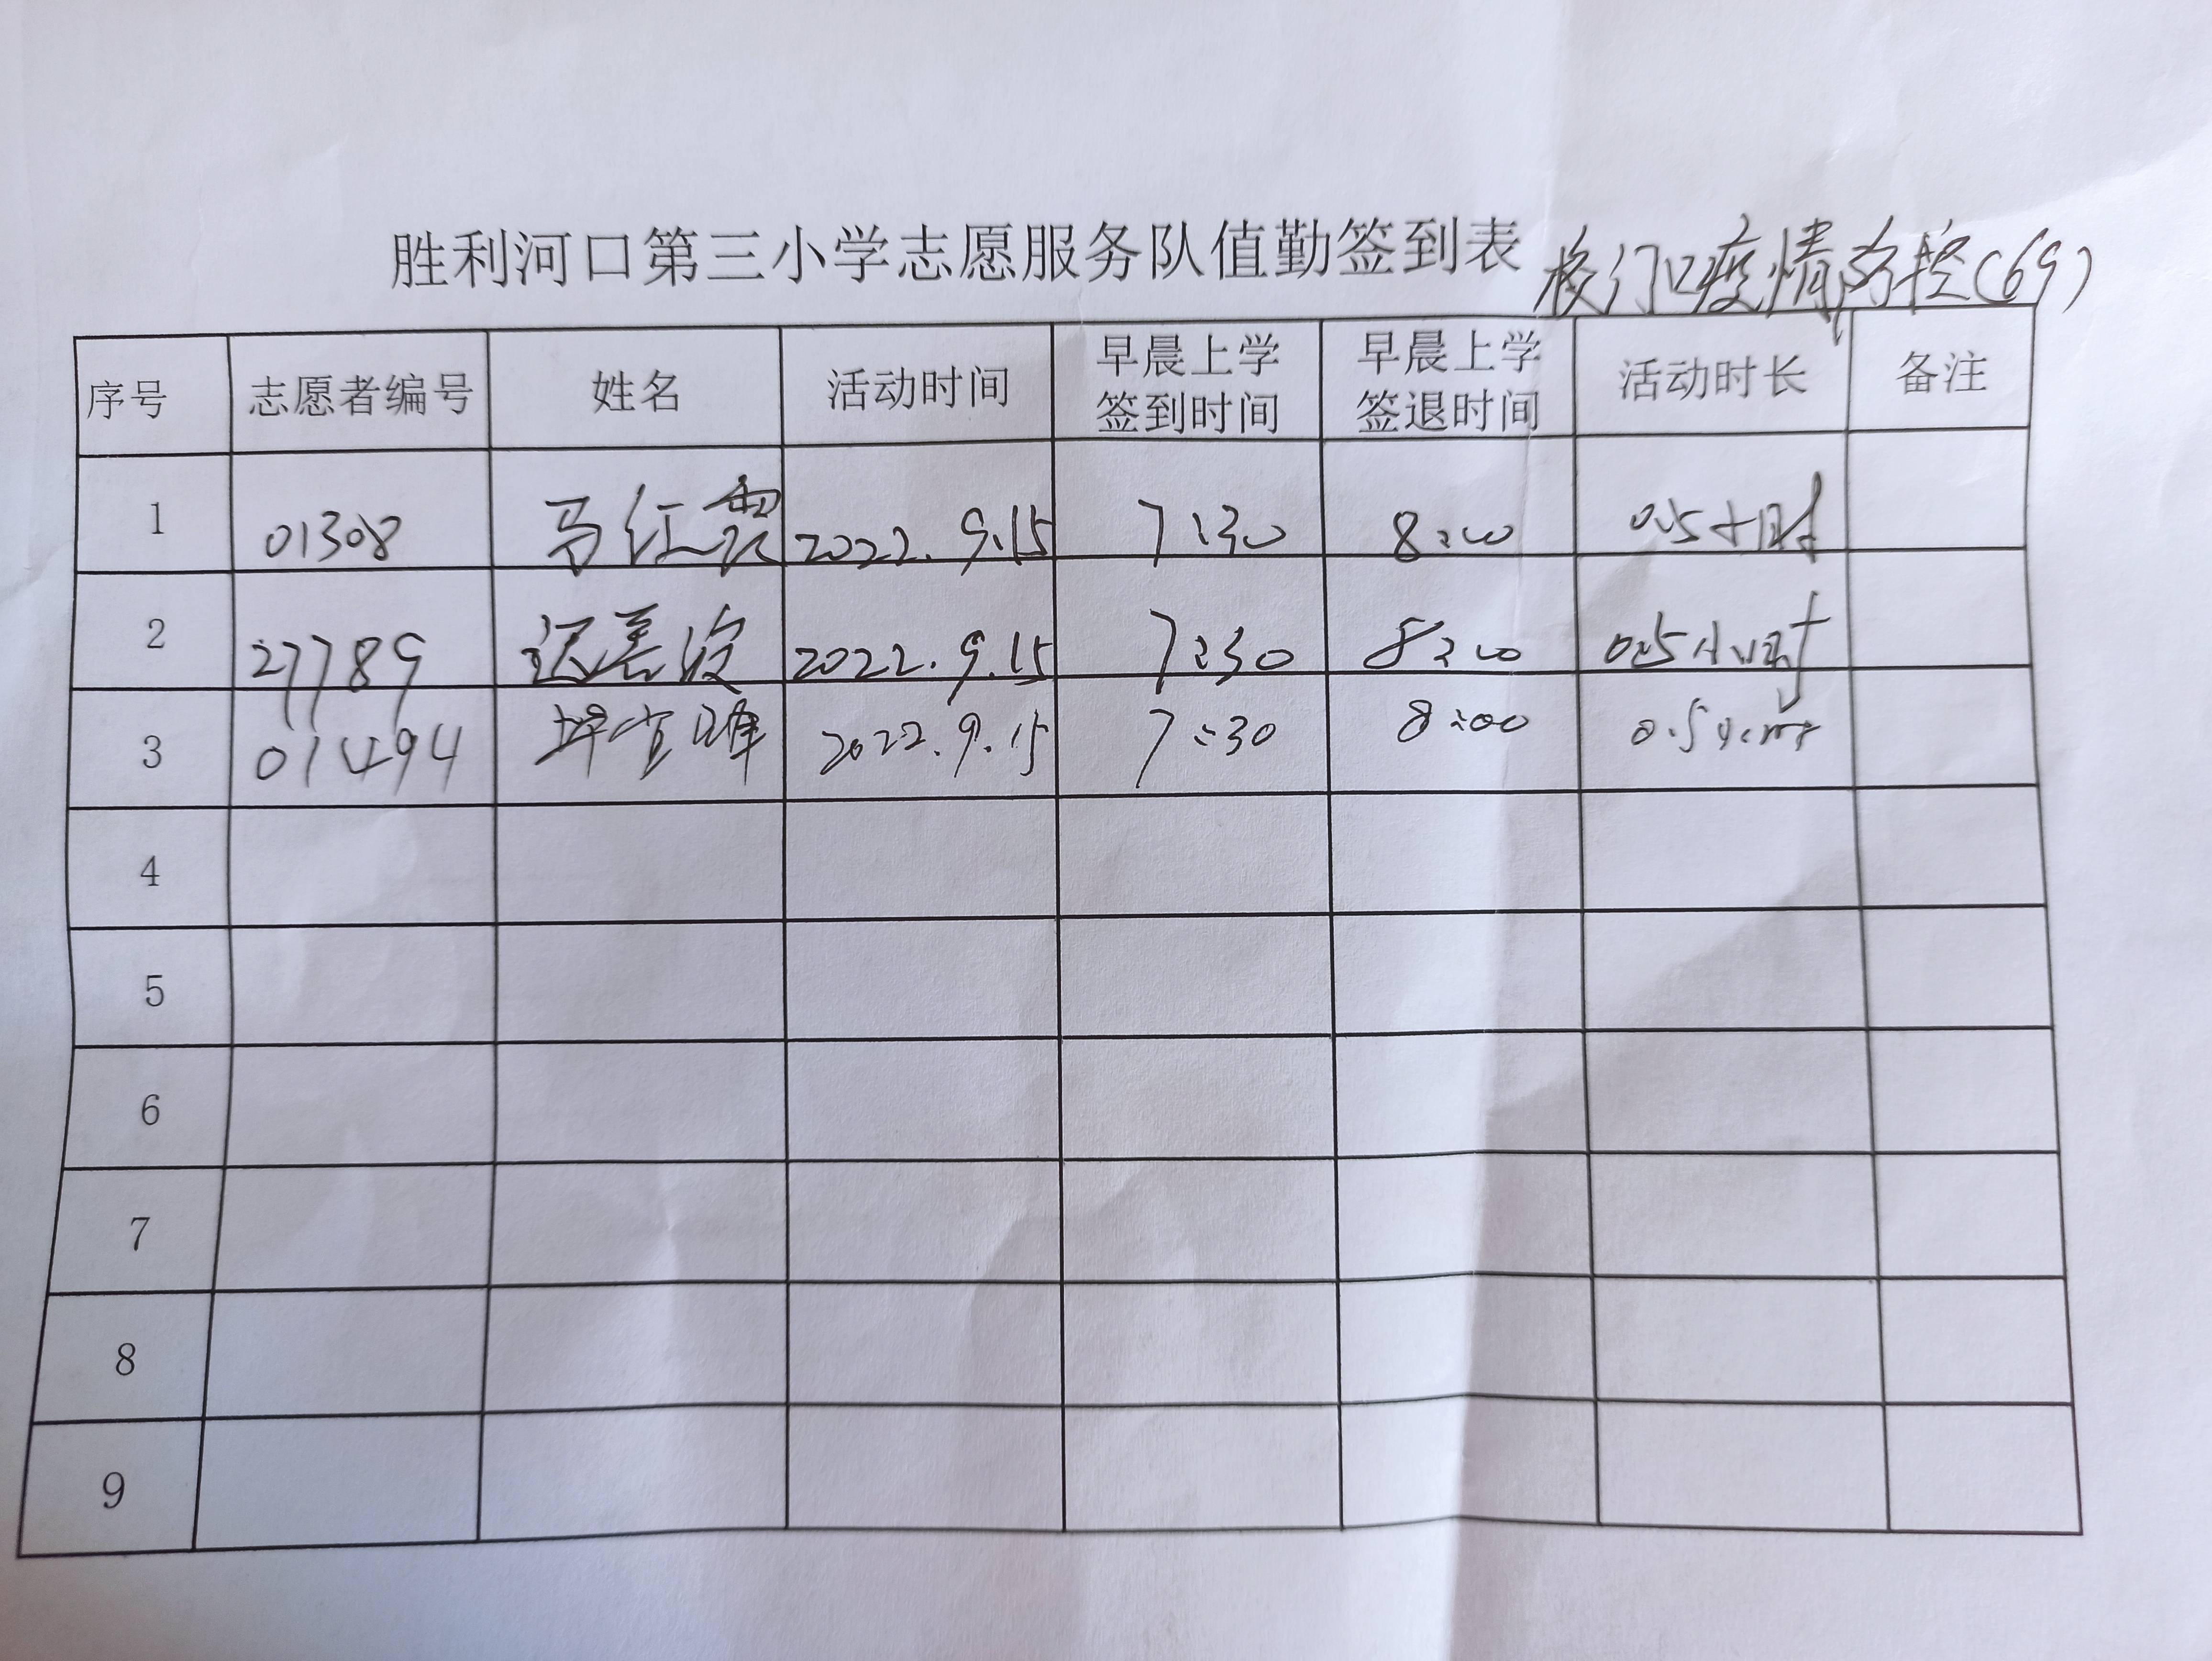 胜利河口第三小学志愿服务队值勤签到表 校门口疫情防控(69)
序号 志愿者编号 姓名 活动时间 早晨上学签到时间 早晨上学签退时间 活动时长 备注
1 01308 马红霞 2022.9.15 7:30 8:00 0.5小时
2 27789 2022.9.15 7:30 8:00 0.5小时
3 01494 2022.9.15 7:30 8:00 0.5小时
4
5
6
7
8
9